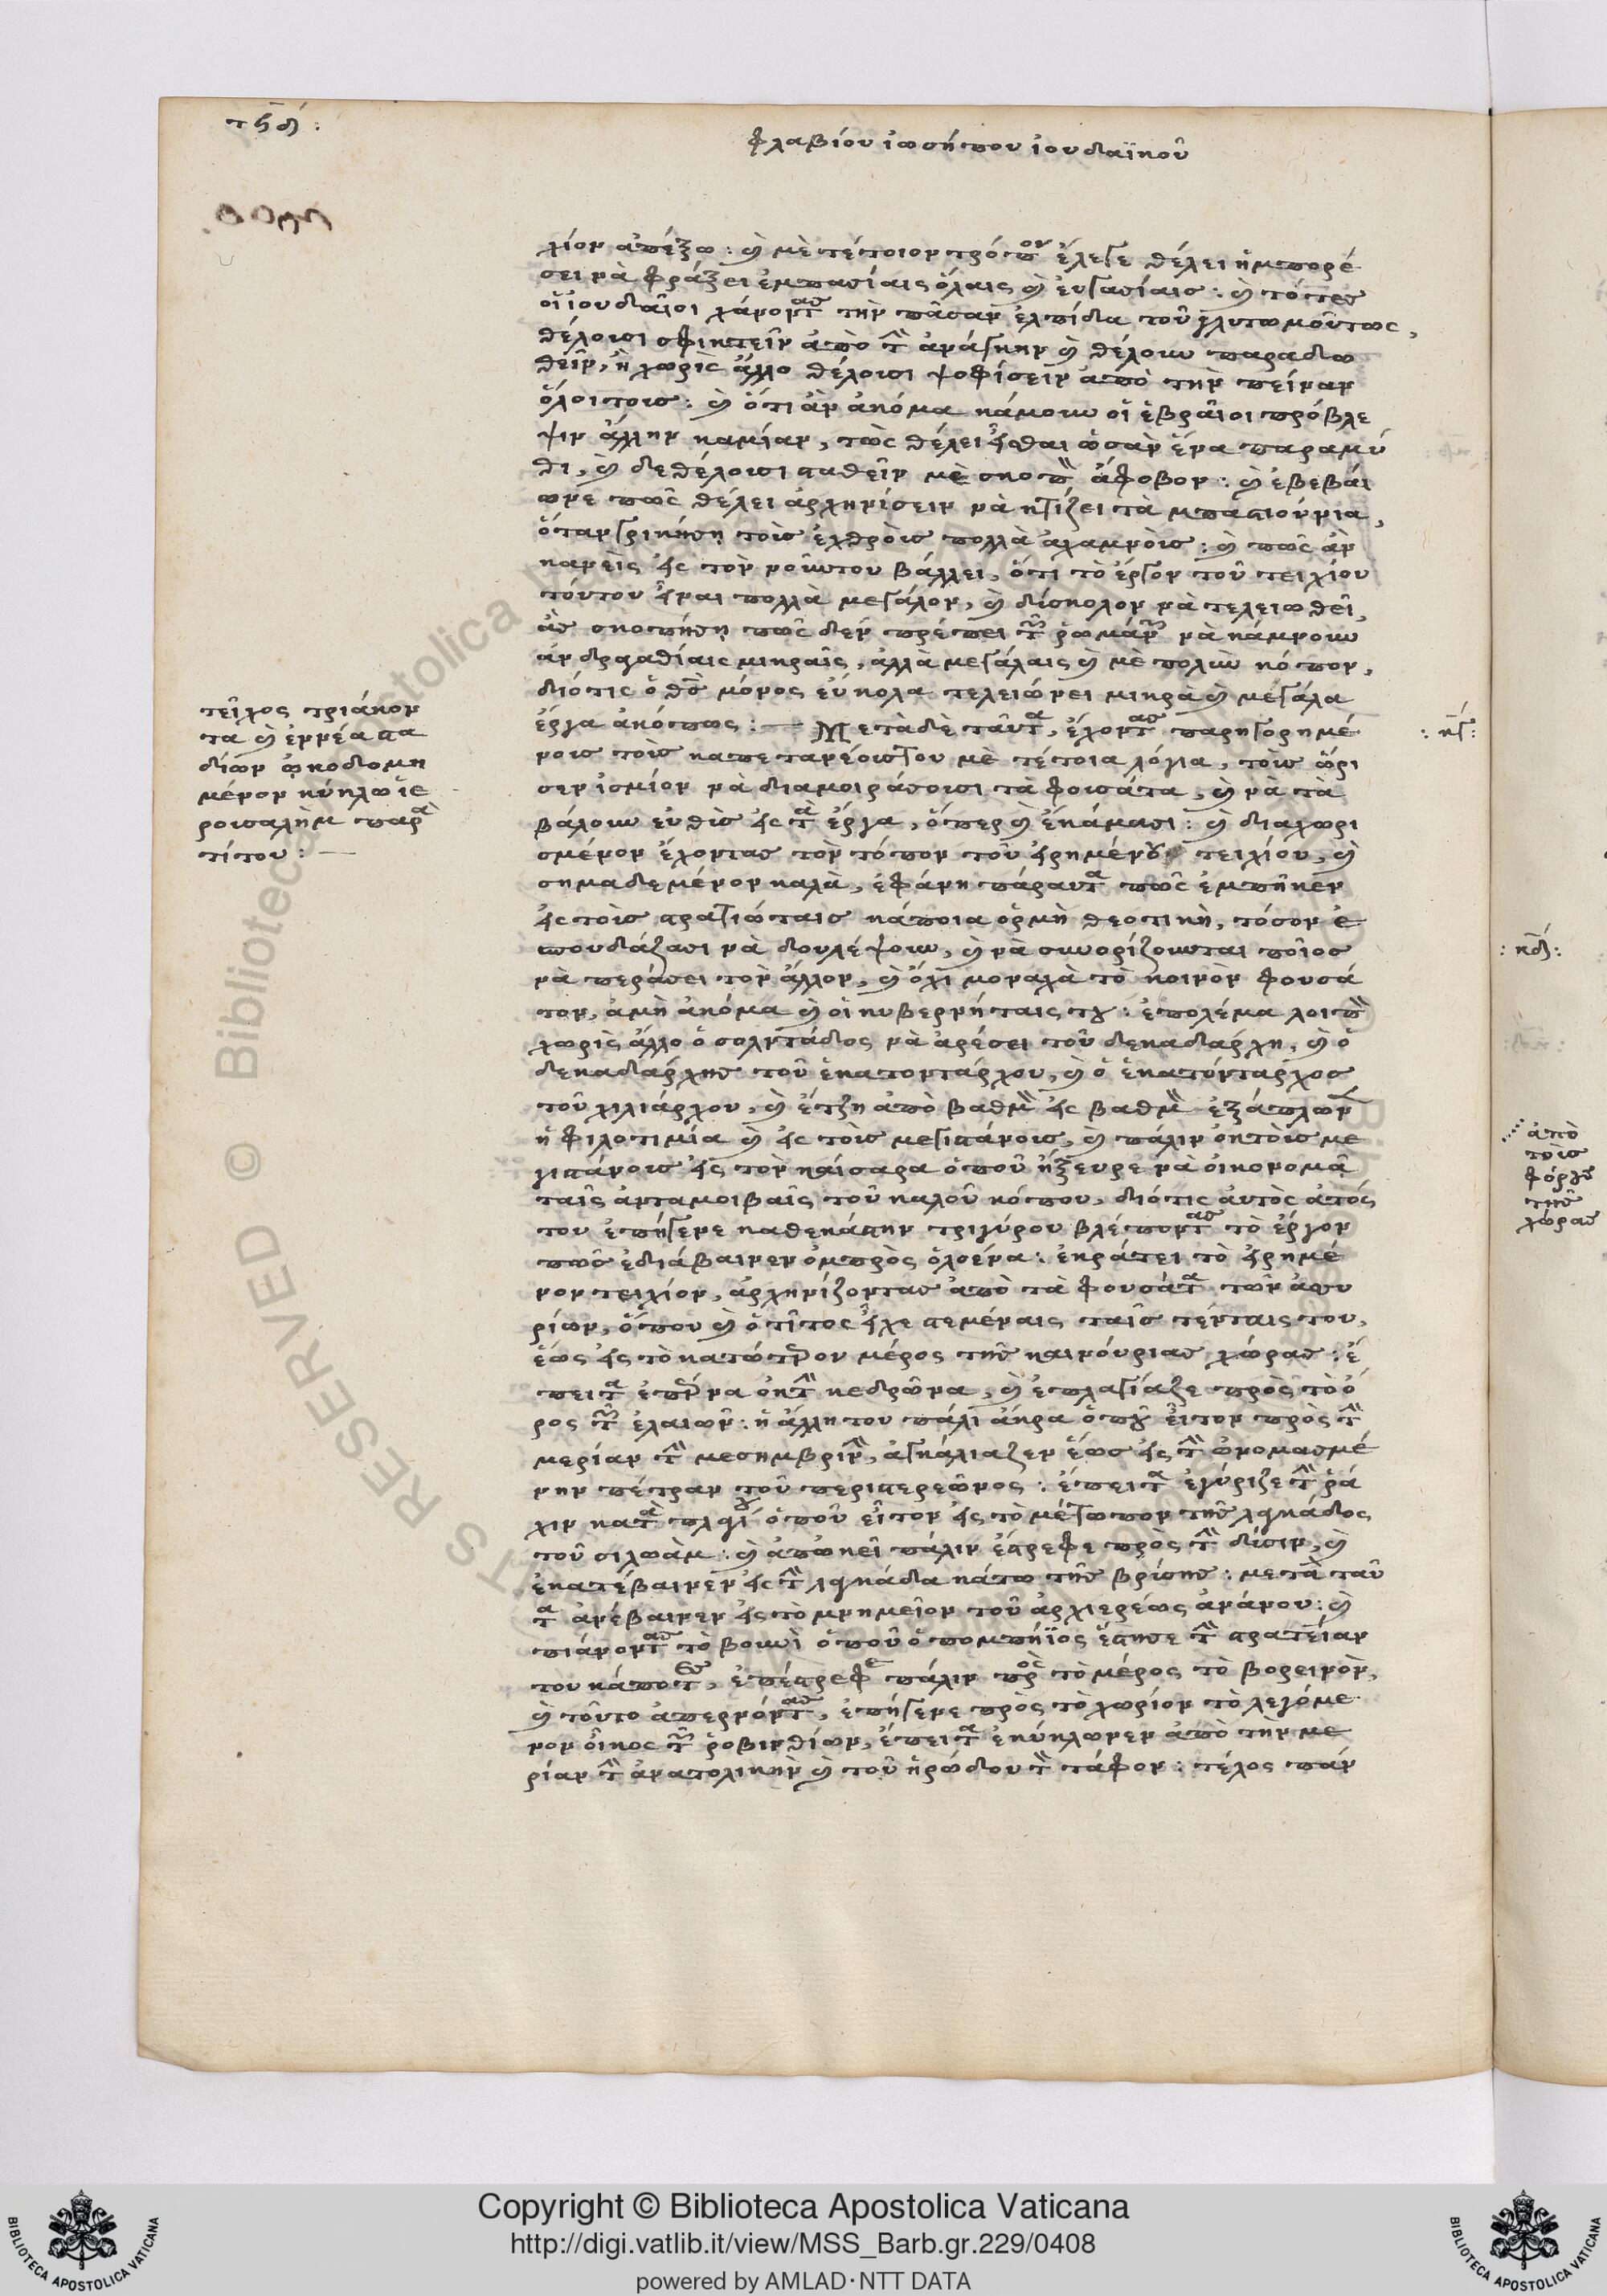 φλαβίου ἰωσήπου ἰουδαϊκοῦ
χίον ἀπέξω: καὶ μὲ τέτοιον τρόπον ἔλεγε θέλει ἠμπορέ
σει νὰ φράξει ἐμπασίαις ὅλαις καὶ ἐυγασίαις: καὶ τότες
οἱ ἰουδαῖοι χάνοντας τὴν πᾶσαν ἐλπίδα τοῦ γλυτωμοῦντως,
θέλουσι σφικτεῖν ἀπὸ τὴν ἀνάγκην καὶ θέλουν παραδω
θεῖν, ἢ χωρὶς ἄλλο θέλουσι ψοφίσειν ἀπὸ τὴν πείναν
ὅλοι τους: καὶ ὅτι ἂν ἀκόμα κάμουν οἱ ἑβραῖοι πρόβλε
ψιν ἄλλην καμίαν, τὼς θέλει εἶσθαι ὡσὰν ἕνα παραμύ
θι, καὶ δε θέλουσι σταθεῖν μὲ σκοπὸν ἄφοβον: καὶ ἐβεβαί
ωνε πῶς θέλει ἀρχηνίσειν νὰ κτίζει τὰ μπαστιούνια,
ὅταν γρικήσῃ τοὺς ἐχθροὺς πολλὰ ἀχαμνοὺς: καὶ πῶς ἂν
κανεὶς εἰς τὸν νοῦντου βάλλει, ὅτι τὸ ἔργον τοῦ τειχίου
τούτου εἶναι πολλὰ μεγάλον, καὶ δύσκολον νὰ τελειωθεῖ,
ἂς σκοπήσῃ πῶς δεν πρέπει τῶν ῥωμάνων νὰ κάμνουν
ἀνδραγαθίαις μικραῖς, ἀλλὰ μεγάλαις καὶ μὲ πολὺν κόπον,
διότις ὁ θεὸς μόνος εὔκολα τελειώνει μικρὰ καὶ μεγάλα
ἔργα ἀκόπως: Μετὰ δὲ ταῦτα, ἔχοντας παρηγορημέ
νους τοὺς καπετανέους του μὲ τέτοια λόγια, τοὺς ὥρι
σεν ἰσμίον νὰ διαμοιράσουσι τὰ φουσάτα, καὶ νὰ τὰ
βάλουν εὐθὺς εἰς τὰ ἔργα, ὅπερ καὶ ἐκάμασι: καὶ διαχωρι
σμένον ἔχοντας τὸν τόπον τοῦ εἰρημένου τειχίου, καὶ
σημαδεμένον καλὰ, ἐφάνη πάραυτα πῶς ἐμπῆκεν
εἰς τοὺς στρατιώταις κάποια ὁρμὴ θεοτικὴ, τόσον ἐ
σπουδάζασι νὰ δουλέψουν, καὶ νὰ συνορίζουνται ποῖος
νὰ περάσει τὸν ἄλλον, καὶ ὄχι μοναχὰ τὸ κοινὸν φουσά
τον, ἀμὴ ἀκόμα καὶ οἱ κυβερνήταις του: ἐπολέμα λοιπὸν
χωρὶς ἄλλο ὁ σολντάδος νὰ αρέσει τοῦ δεκαδάρχη, καὶ ὁ
δεκαδάρχης τοῦ ἑκατοντάρχου, καὶ ὁ ἑκατόνταρχος
τοῦ χιλιάρχου, καὶ ἔτζη ἀπὸ βαθμὸν εἰς βαθμὸν ἐξάπλωνεν
ἡ φιλοτιμία καὶ εἰς τοὺς μεγιστάνους, καὶ πάλιν ὀκ τοὺς με
γιστάνους εἰς τὸν καίσαρα ὁποῦ ἤξευρε νὰ οἰκονομᾶ
ταῖς ἀνταμοιβαῖς τοῦ καλοῦ κόπου, διότις αὐτὸς ἀτός
του ἐπήγενε καθεκάστην τριγύρου βλέποντας τὸ ἔργον
πῶς ἐδιάβαινεν ὀμπρὸς ὁλοένα: ἐκράτει τὸ εἰρημέ
νον τειχίον, ἀρχηνίζοντας ἀπὸ τὰ φουσάτα τῶν ἀσυ
ρίων, ὅπου καὶ ὁ τίτος εἶχε στεμέναις ταῖς τένταις του,
ἕως εἰς τὸ κατώτερον μέρος τῆς καινούριας χώρας: ἔ
πειτα ἐπέρνα ὀκ τὸν κεδρῶνα, καὶ ἐπλαγίαζε πρὸς τὸ ὄ
ρος τῶν ἐλαιῶν: ἡ ἄλλη του πάλι ἄκρα ὁποῦ εἶτον πρὸς τὴν
μερίαν τὴν μεσημβρινὴν, ἀγκάλιαζεν ἕως εἰς τὴν ὠνομασμέ
νην πέτραν τοῦ περιστερεῶνος: ἔπειτα ἐγύριζε τὴν ῥά
χιν κατὰ πλαγίου ὁποῦ εἶτον εἰς τὸ μέτωπον τῆς λαγκάδος
τοῦ σιλωὰμ: καὶ ἀπ᾽ ἐκεῖ πάλιν ἔστρεφε πρὸς τὴν δύσιν, καὶ
ἐκατέβαινεν εἰς τὴν λαγκάδα κάτω τῆς βρύσης: μετὰ ταῦ
τα ἀνέβαινεν εἰς τὸ μνημεῖον τοῦ ἀρχιερέως ἀνάνου: καὶ
πιάνοντας τὸ βουνὶ ὁποῦ ὁ πομπήϊος ἔστησε τὴν στρατείαν
του κάποτε, ἐπέστρεφε πάλιν πρὸς τὸ μέρος τὸ βορεινὸν,
καὶ τοῦτο ἀπερνόντας, ἐπήγενε πρὸς τὸ χωρίον τὸ λεγόμε
νον οἶκος τῶν ῥοβινθίων, ἔπειτα ἐκύκλωνεν ἀπὸ τὴν με
ρίαν τὴν ἀνατολικὴν καὶ τοῦ ἡρώδου τὸν τάφον: τέλος πάν
τεῖχος τριάκον
τα καὶ ἐννέα στα
δίων ᾠκοδομη
μένον κύκλῳ ἱε
ρουσαλὴμ παρὰ
τίτου:
: κγ:
: κδ:
ἀπὸ
τοὺς
φόρους
τῆς
χώρας
Copyright © Biblioteca Apostolica Vaticana
http://digi.vatlib.it/view/MSS_Barb.gr.229/0408
powered by AMLAD·NTT DATA
BIBLIOTECA APOSTOLICA VATICANA
BIBLIOTECA APOSTOLICA VATICANA